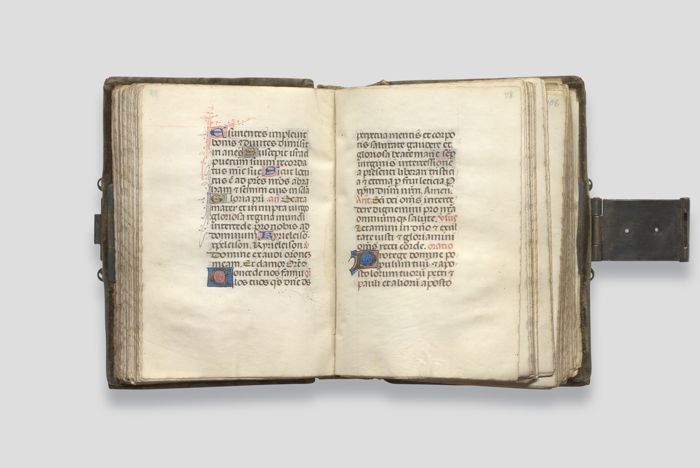 Esurientes impleuit
bonis & diuites dimisit
in anes Suscepit israel
puerum suum recorda
tus mīe sue Sicut locu
tus ē ad p̄res nr̄os abra
ham & semini eius in sc̄la
Gloria pr̄i. an̄ Beata
mater et innupta uirgo
gloriosa regina mundi
intercede pro nobis ad
dominum Kyrieleisō
xp̄eleison. Kyrieleison
Domine exaudi oronē
meam. Et clamor Orēs
Concede nos famu
los tuos qs dn̄e ds
perpetua mentis et corpo
ris sanitate gaudere et
gloriosa beate marie sep̄
uirginis intercessione
a presenti liberari tristiti
a & eterna p̄ frui leticia P
xp̄m dn̄m nr̄m. Amen.
An̄t Sc̄i dei om̄s interce
dere dignemini pro nr̄a
omniumqs salute.
Letamini in dn̄o & exul
tate iusti & gloriamini
om̄s recti corde. oratio
Protege domine po
pulum tuū & apo
stolorum tuorū petri &
pauli et alioru aposto